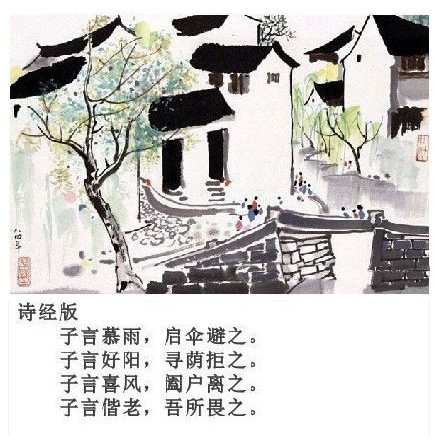 诗经版
子言慕雨，启伞避之。
子言好阳，寻荫拒之。
子言喜风，阖户离之。
子言偕老，吾所畏之。